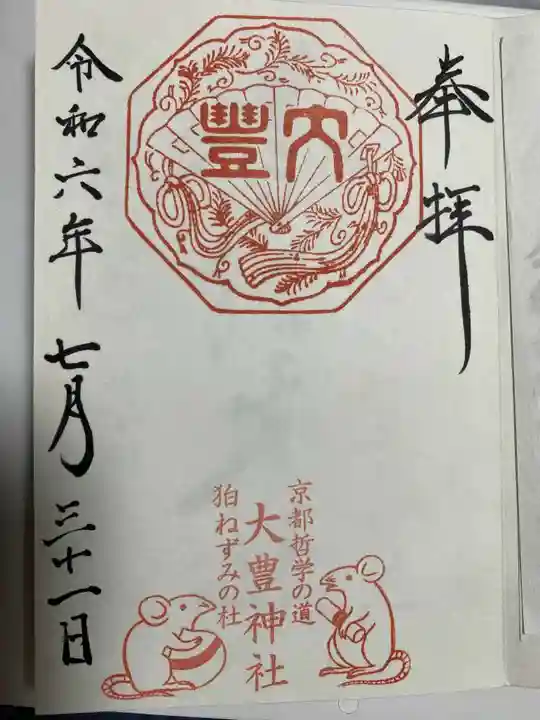 奉拝
大豐
京都哲学の道
大豊神社
狛ねずみの社
令和六年七月三十一日